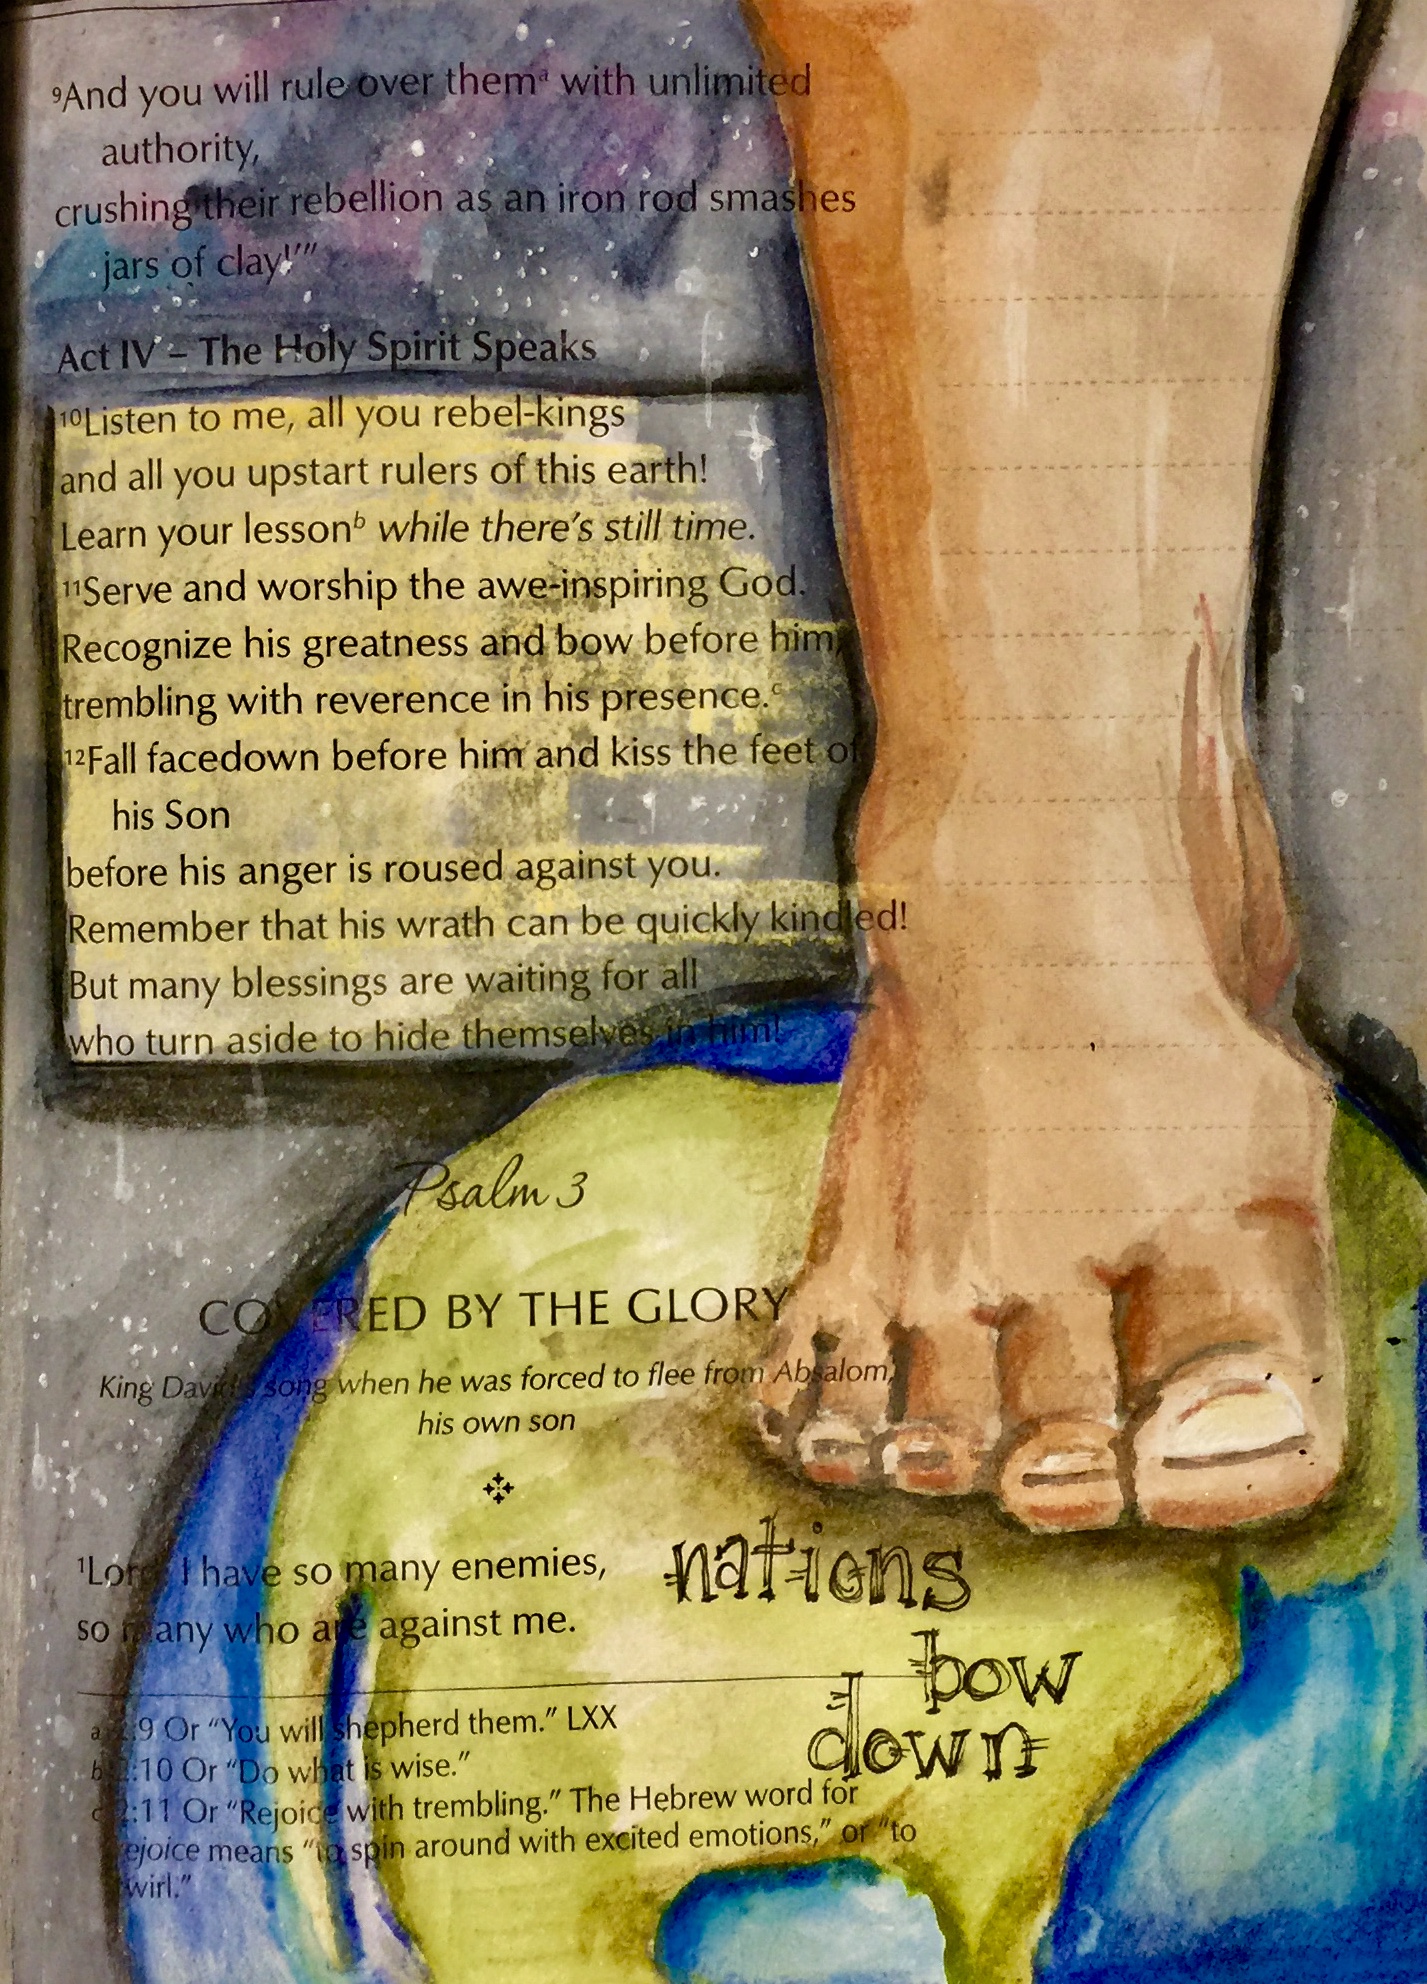 ⁹And you will rule over themᵃ with unlimited
authority,
crushing their rebellion as an iron rod smashes
jars of clay!’”
Act IV – The Holy Spirit Speaks
¹⁰Listen to me, all you rebel-kings
and all you upstart rulers of this earth!
Learn your lessonᵇ while there’s still time.
¹¹Serve and worship the awe-inspiring God.
Recognize his greatness and bow before him,
trembling with reverence in his presence.ᶜ
¹²Fall facedown before him and kiss the feet of
his Son
before his anger is roused against you.
Remember that his wrath can be quickly kindled!
But many blessings are waiting for all
who turn aside to hide themselves in him!
Psalm 3
COVERED BY THE GLORY
King David’s song when he was forced to flee from Absalom,
his own son
¹Lord, I have so many enemies,
so many who are against me.
nations
bow
down
a 2:9 Or “You will shepherd them.” LXX
b 2:10 Or “Do what is wise.”
c 2:11 Or “Rejoice with trembling.” The Hebrew word for
rejoice means “to spin around with excited emotions,” or “to
twirl.”